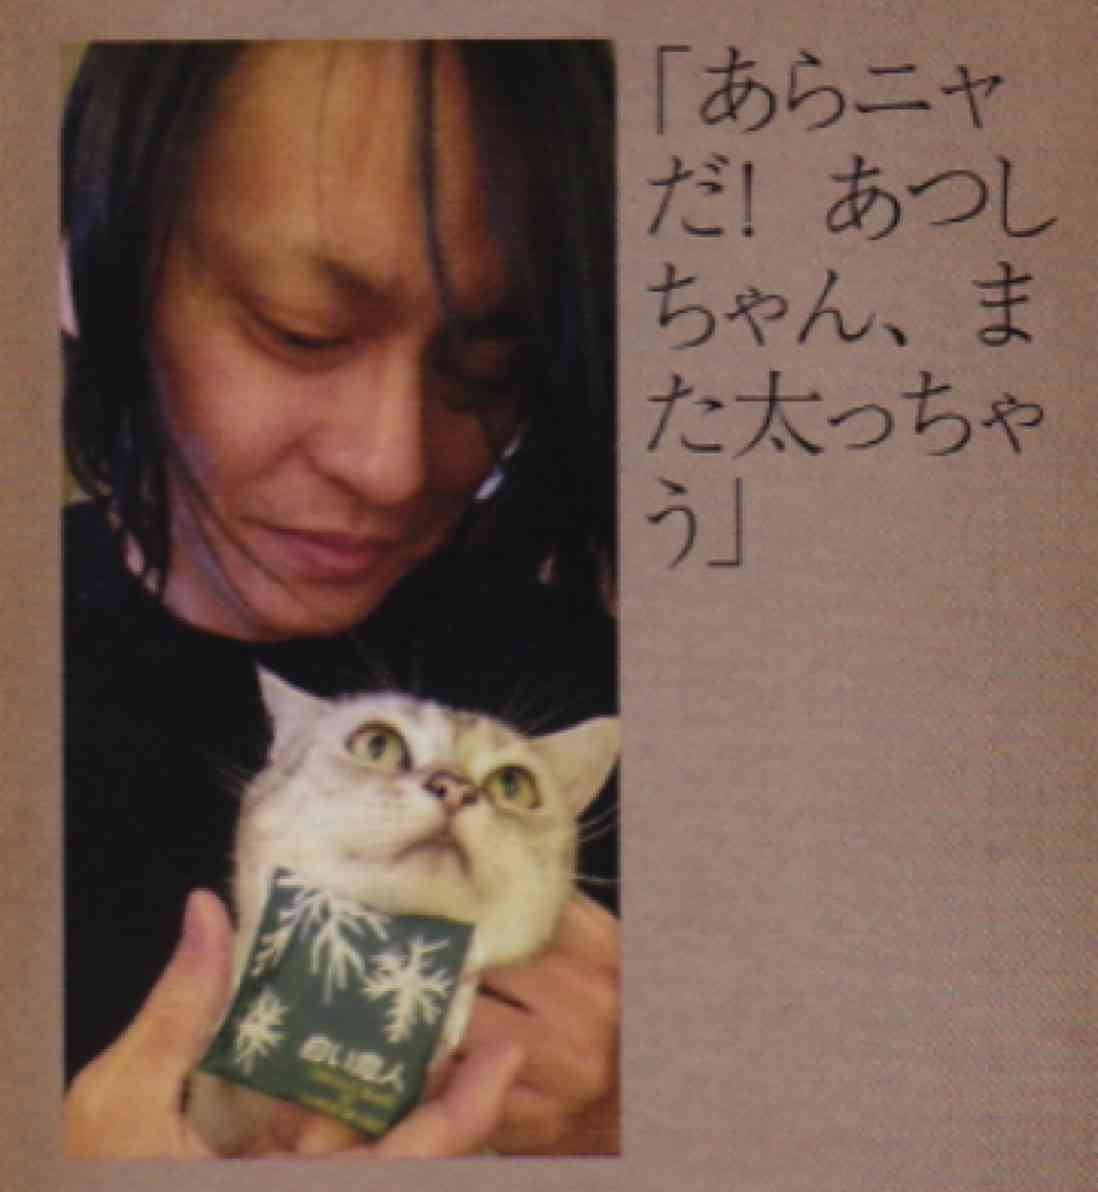 「あらニャ
だ！ あつし
ちゃん、ま
た太っちゃ
う」
白い恋人